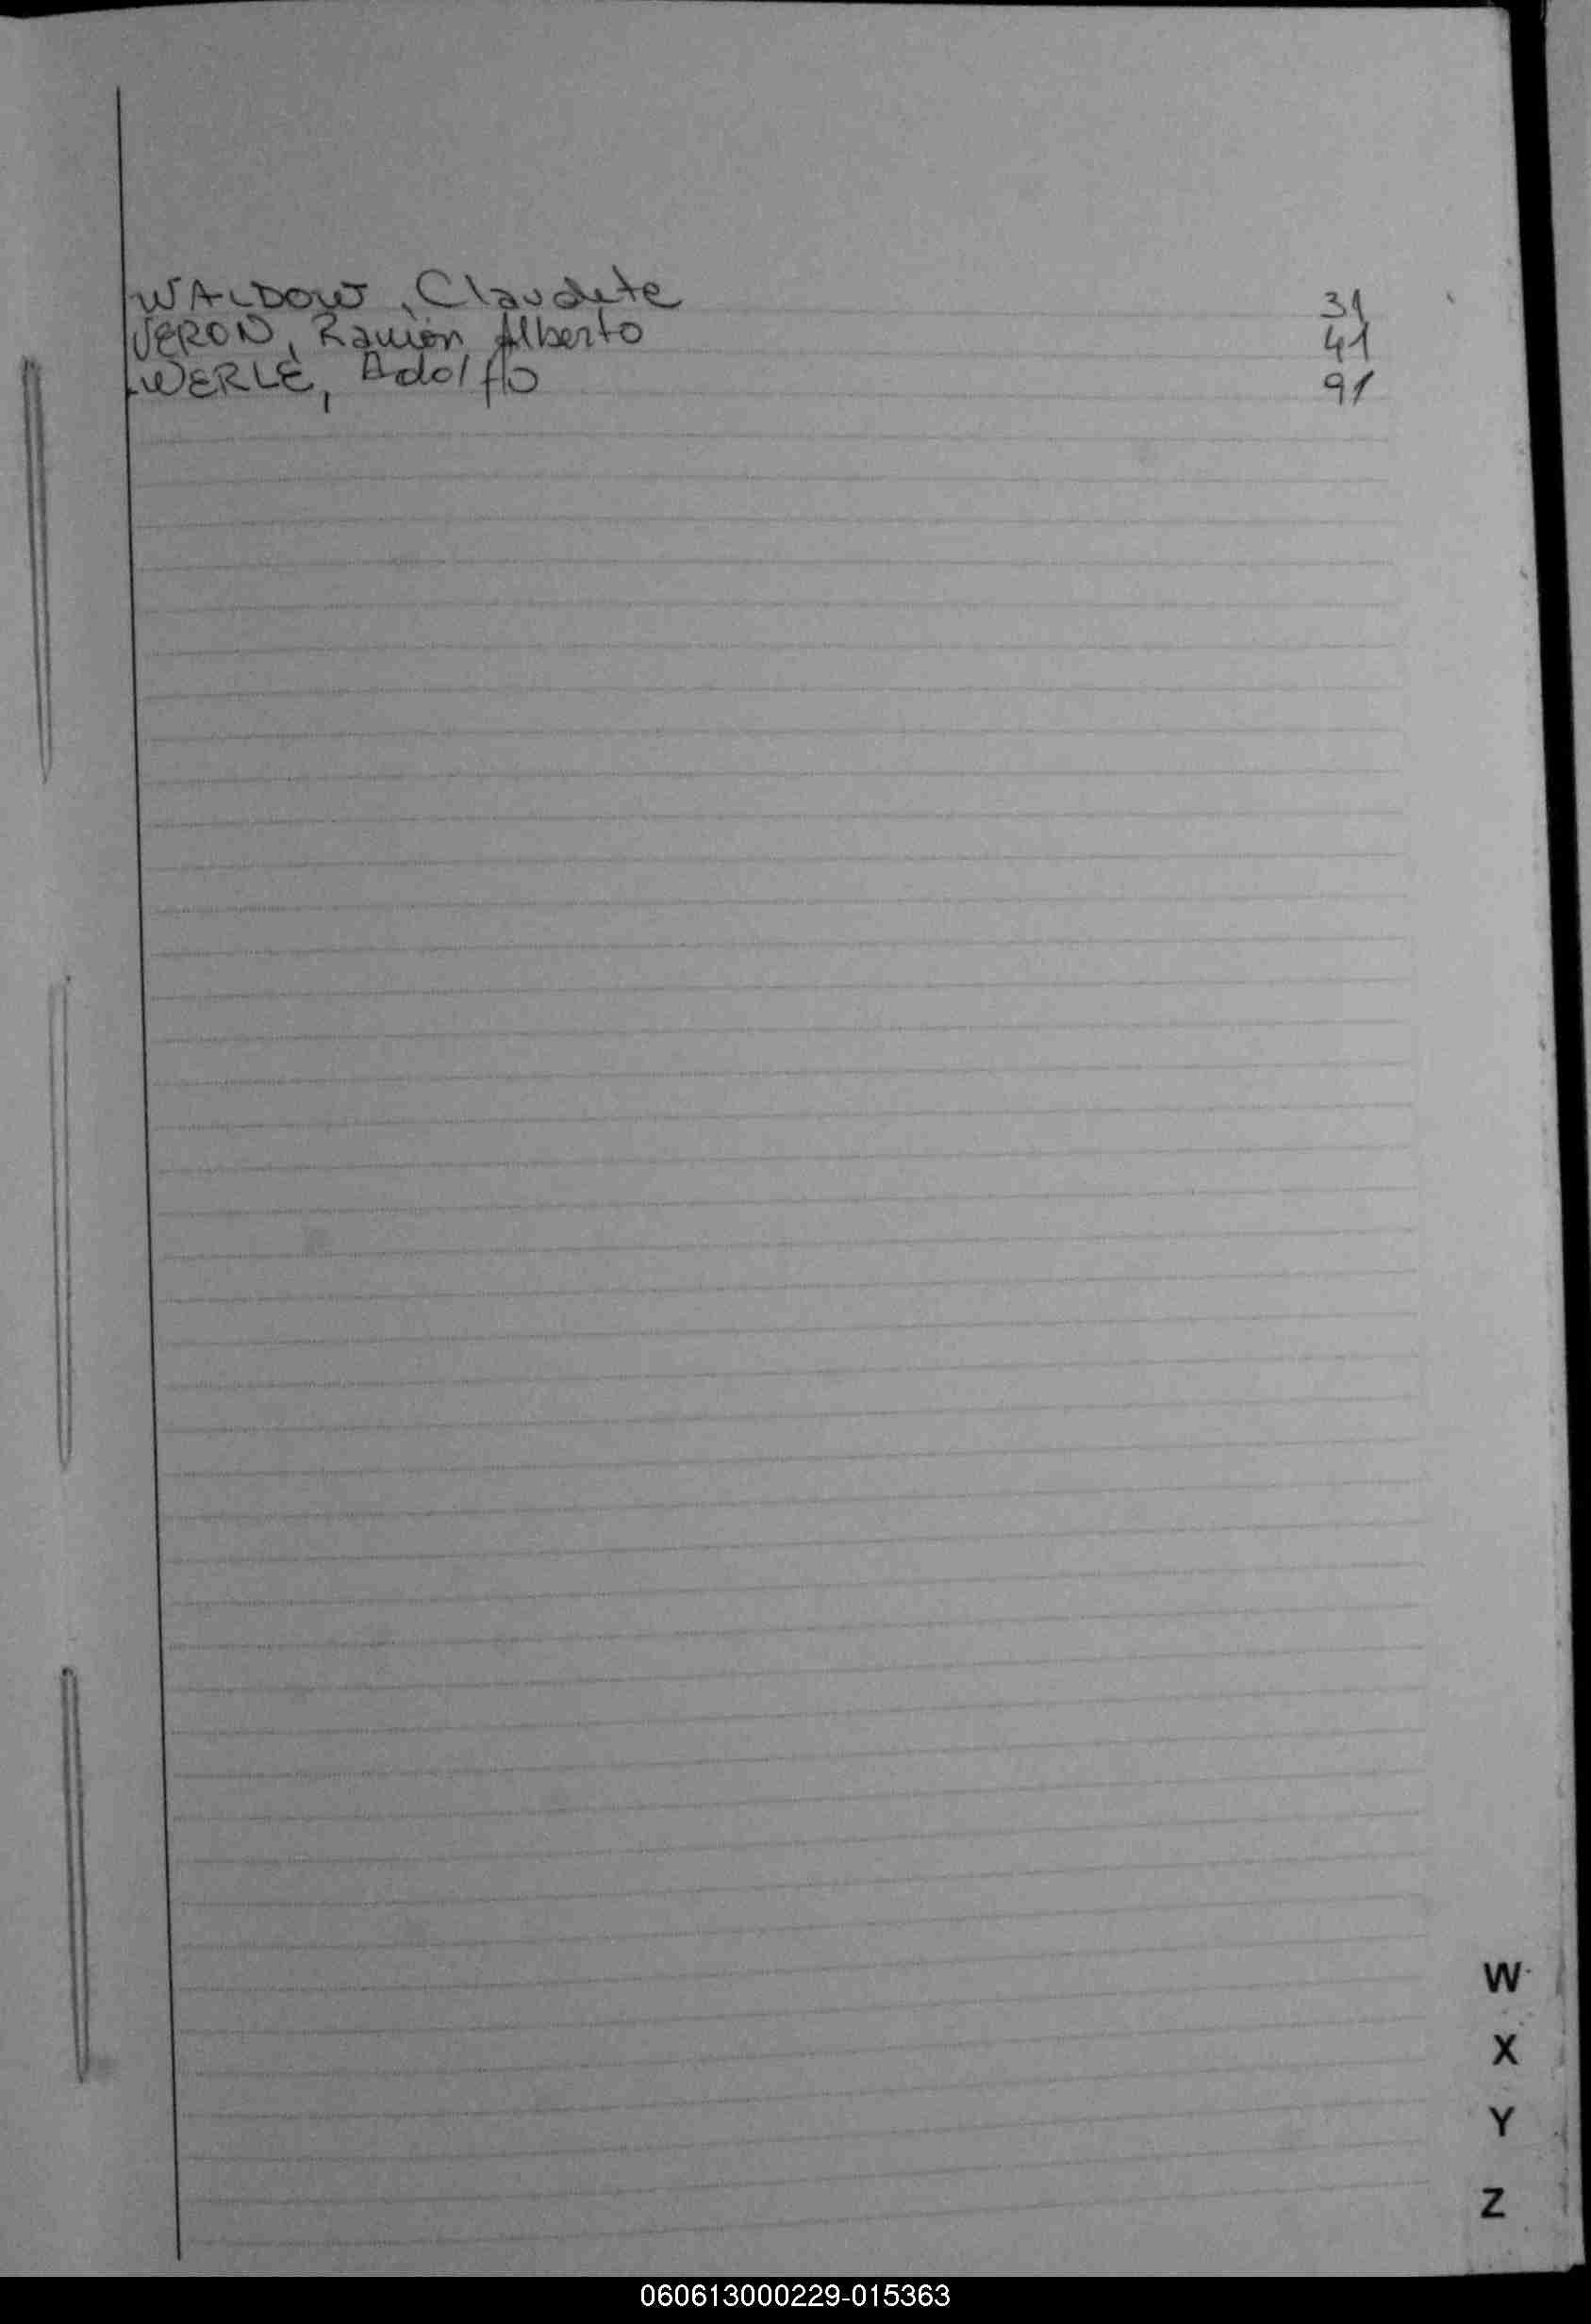 WALDOW, Claudete 31
VERON, Ramón Alberto 41
WERLE, Adolfo 91
W
X
Y
Z
060613000229-015363